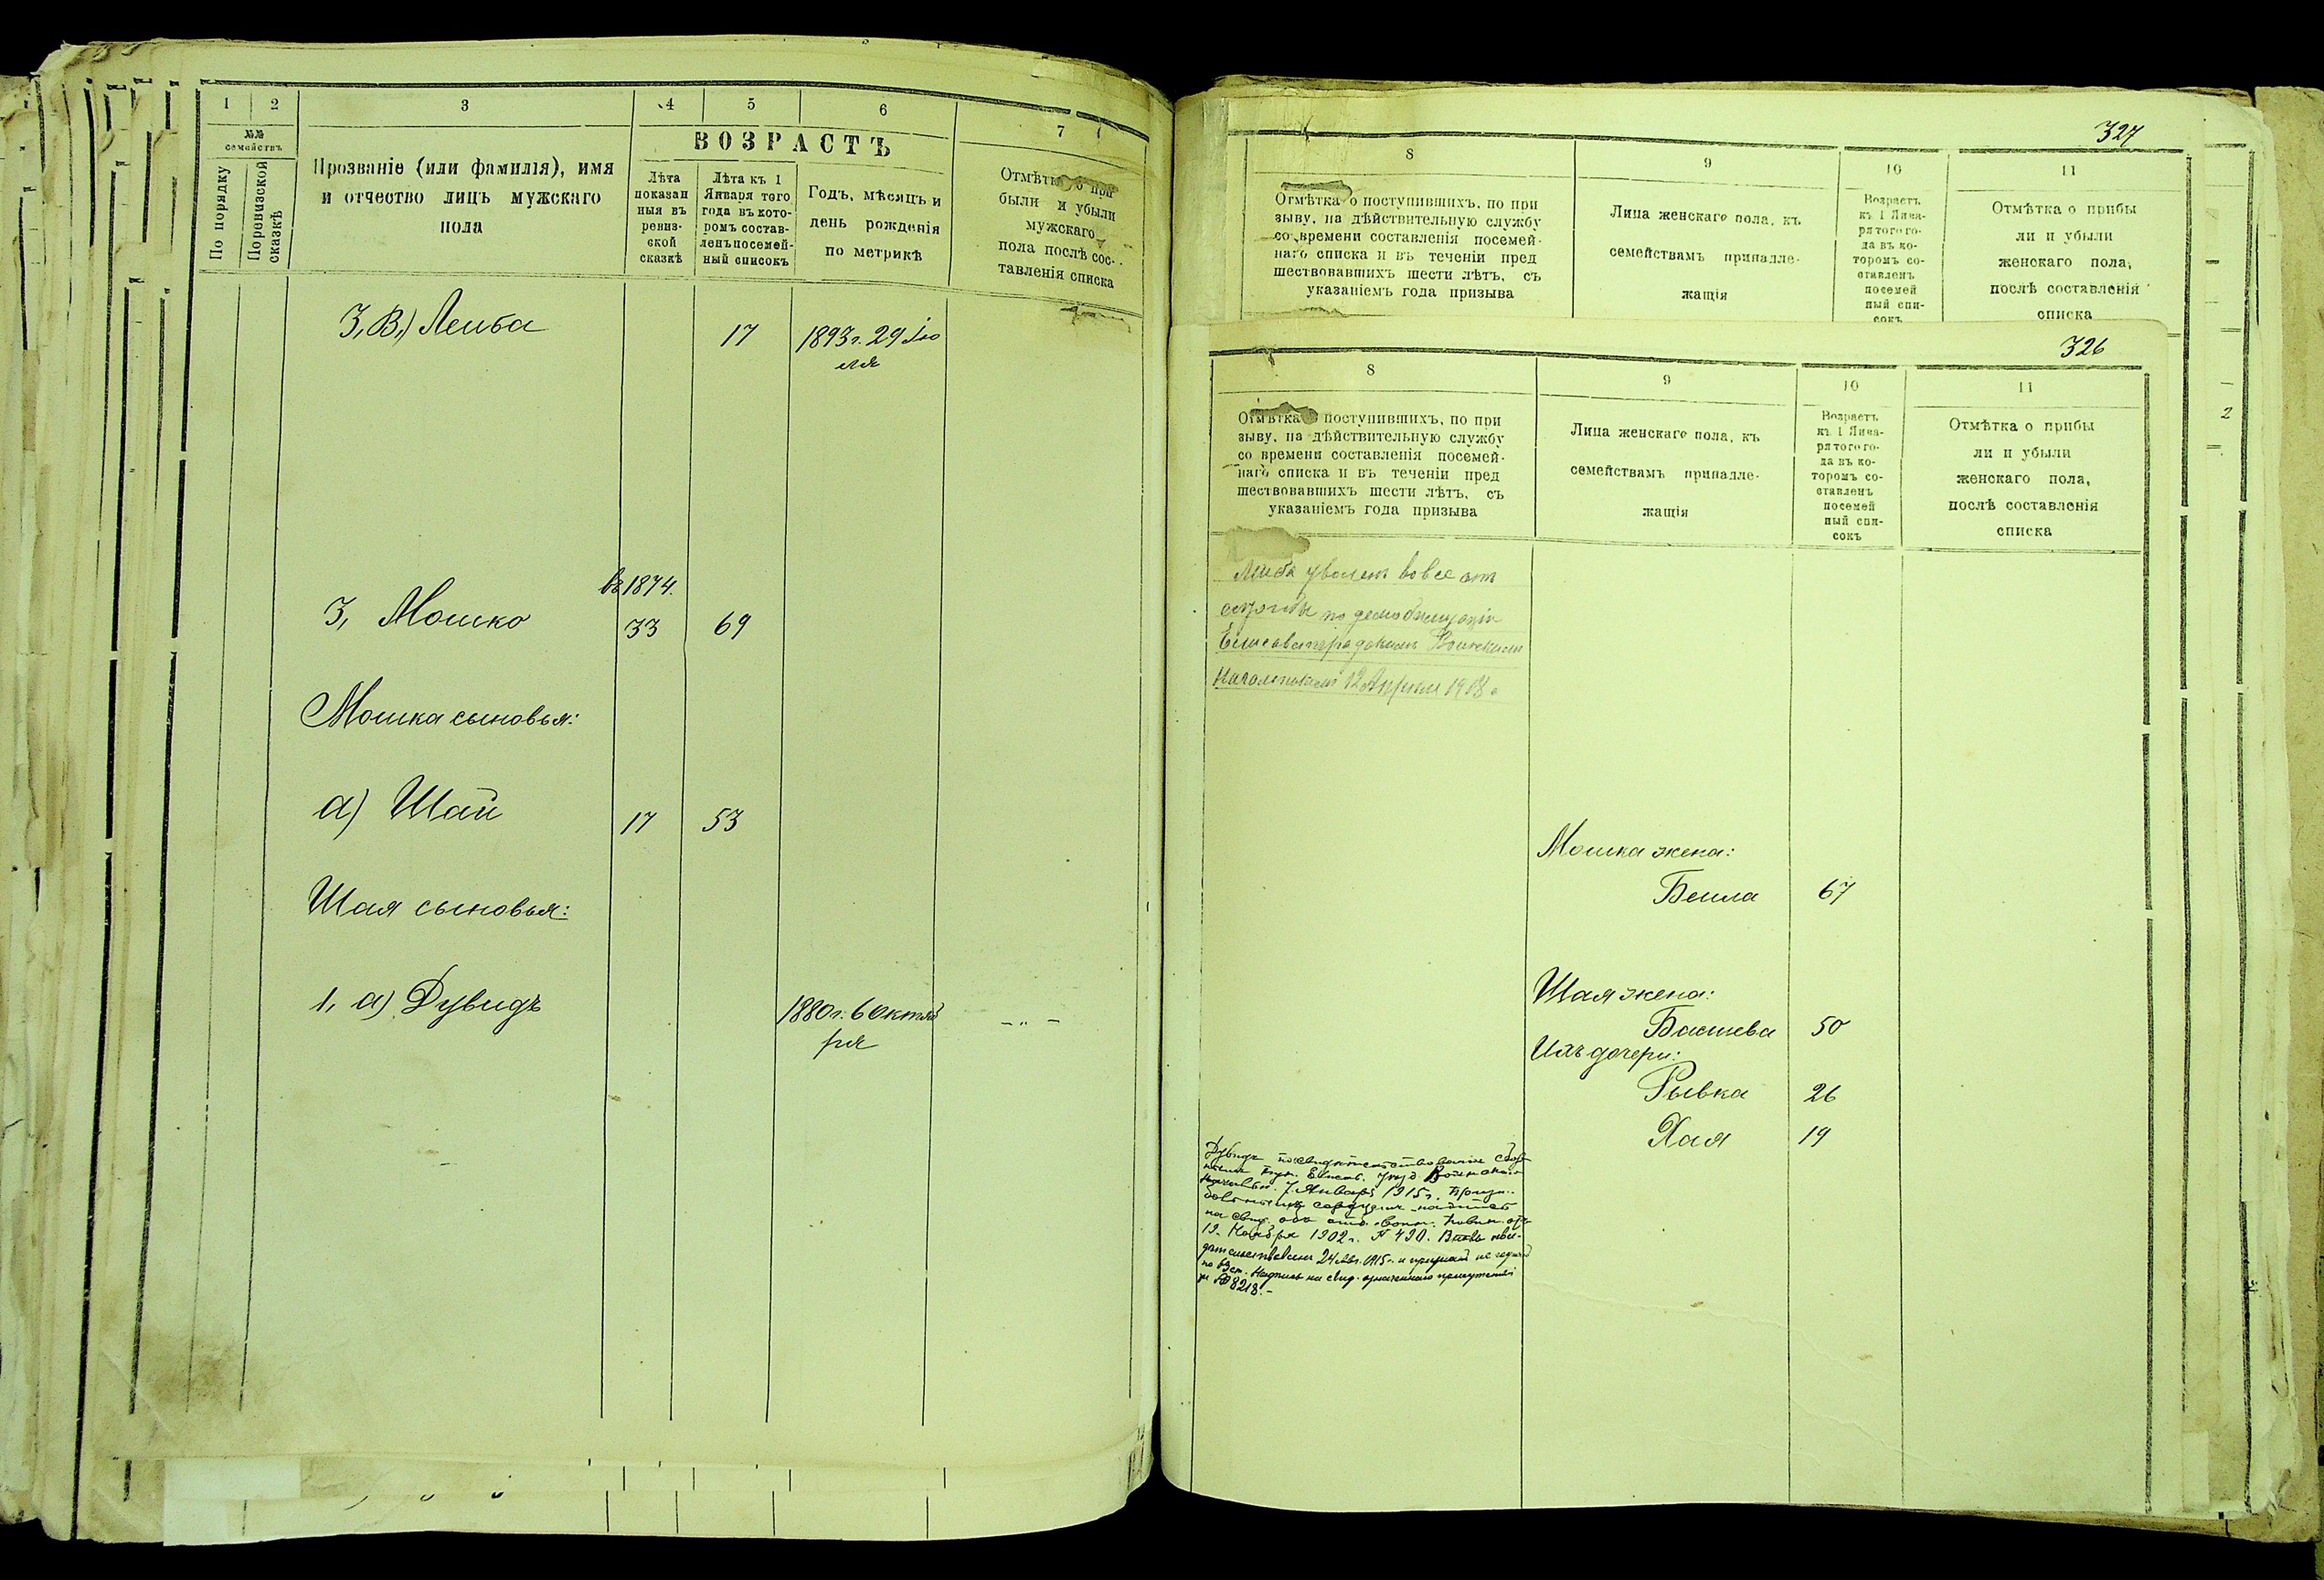 1
2
3
4
5
6
7
№№ семействъ
По порядку
По ревизской сказкѣ
Прозваніе (или фамилія), имя
и отчество лицъ мужскаго
пола
ВОЗРАСТЪ
Лѣта
показан
ныя въ
ревиз-
ской
сказкѣ
Лѣта къ 1
Января того
года въ кото-
ромъ состав-
ленъ посемей-
ный списокъ
Годъ, мѣсяцъ и
день рожденія
по метрикѣ
Отмѣтка о при
были и убыли
мужскаго
пола послѣ сос-
тавленія списка
3, В,) Лейба
17
1893 г. 29 Iю
ля
въ 1874.
3, Мошко
33
69
Мошка сыновья:
а) Шай
17
53
Шая сыновья:
1, а) Дувидъ
1880 г. 6 октяб
ря
327
8
9
10
11
Отмѣтка о поступившихъ, по при
зыву, на дѣйствительную службу
со времени составленія посемей-
наго списка и въ теченіи пред
шествовавшихъ шести лѣтъ, съ
указаніемъ года призыва
Лица женскаго пола, къ
семействамъ принадле-
жащія
Возрастъ
къ 1 Янва-
ря того го-
да въ ко-
торомъ со-
ставленъ
посемей
ный спи-
сокъ
Отмѣтка о прибы
ли и убыли
женскаго пола,
послѣ составленія
списка
326
8
9
10
11
Отмѣтка поступившихъ, по при
зыву, на дѣйствительную службу
со времени составленія посемей-
наго списка и въ теченіи пред
шествовавшихъ шести лѣтъ, съ
указаніемъ года призыва
Лица женскаго пола, къ
семействамъ принадле-
жащія
Возрастъ
къ 1 Янва-
ря того го-
да въ ко-
торомъ со-
ставленъ
посемей
ный спи-
сокъ
Отмѣтка о прибы
ли и убыли
женскаго пола,
послѣ составленія
списка
Лейба уволенъ вовсе отъ
службы по демобилизаціи
Елисаветградскимъ Воинскимъ
Начальникомъ 12 Апреля 1918 г
Мошка жена:
Бейла 67
Шая жена:
Басшева 50
Ихъ дочери:
Рывка 26
Хая 19
Дувидъ
Елисав. Уезд Воинскаго
7 Января 1915 г.
на свид. объ
19 Ноября 1902 г. № 490. Вновь
24 1915 г. и не
на свид.
№ 8218.
2